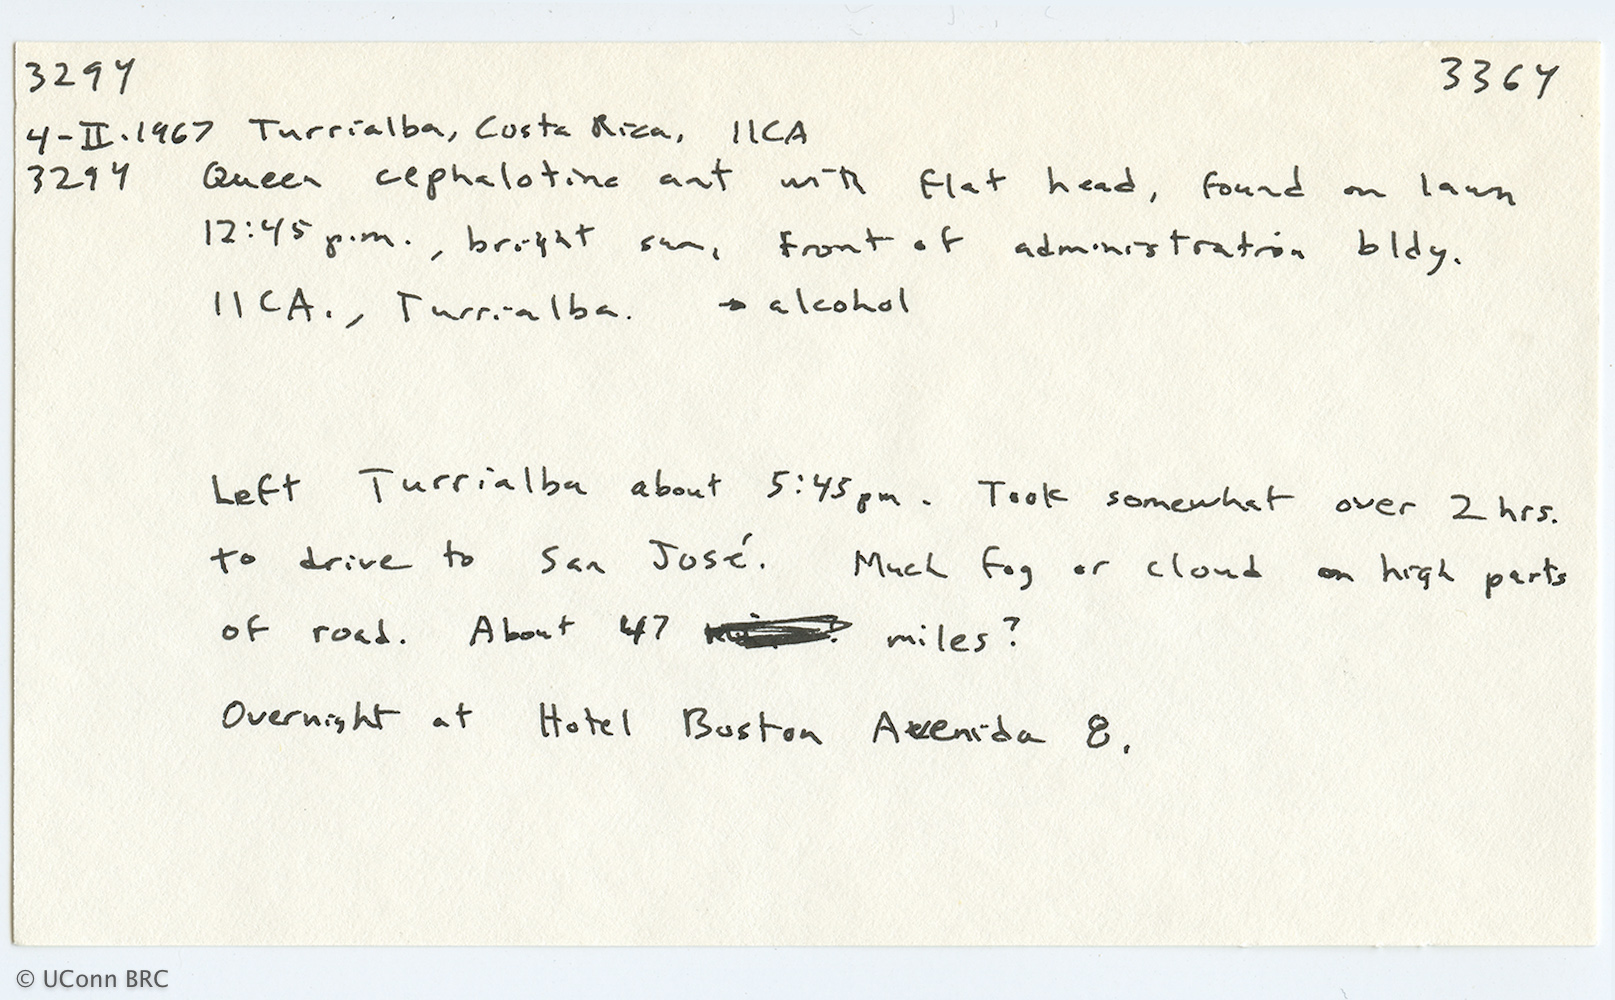 3294 3364
4-II.1967 Turrialba, Costa Rica, IICA
3294 Queen cephalotine ant with flat head, found on lawn
12:45 p.m., bright sun, front of administration bldg.
IICA., Turrialba. → alcohol
Left Turrialba about 5:45 pm. Took somewhat over 2 hrs.
to drive to San José. Much fog or cloud on high parts
of road. About 47 miles?
Overnight at Hotel Boston Avenida 8.
© UConn BRC